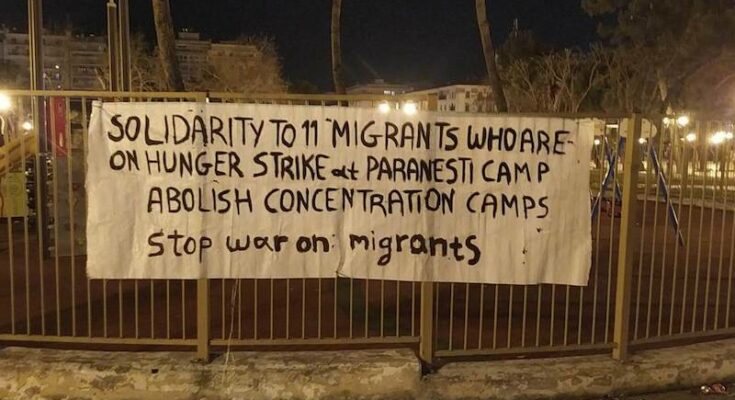 SOLIDARITY TO 11 MIGRANTS WHO ARE
ON HUNGER STRIKE at PARANESTI CAMP
ABOLISH CONCENTRATION CAMPS
Stop war on: migrants